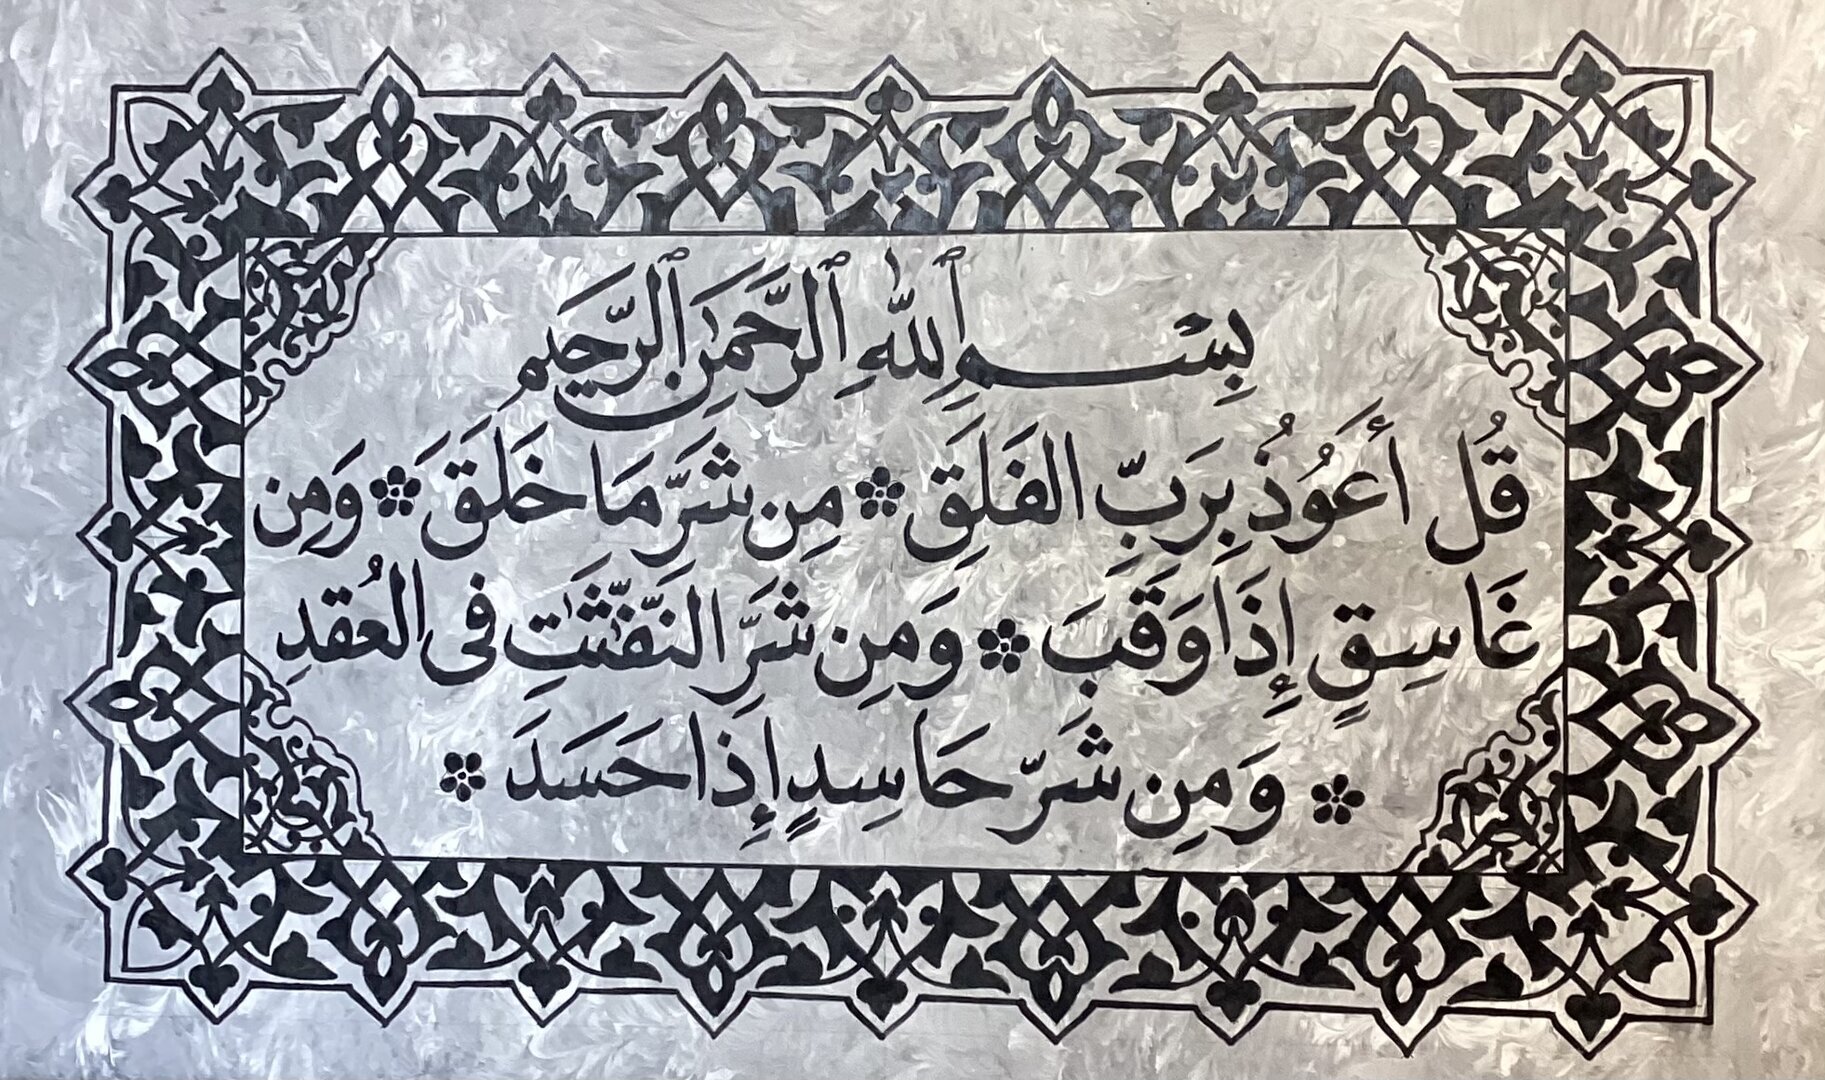 بِسْمِ ٱللَّهِ ٱلرَّحْمَٰنِ ٱلرَّحِيمِ
قُل أَعَوُذُ بِرَبِّ الفَلَقِ مِن شَرَّ مَا خَلَقَ وَمِن
غَاسِقٍ إِذَا وَقَبَ وَمِن شَرَّ النَّفَّٰثَٰتِ فى العُقدِ
وَمِن شَرَّ حَاسِدٍ إِذَا حَسَدَ